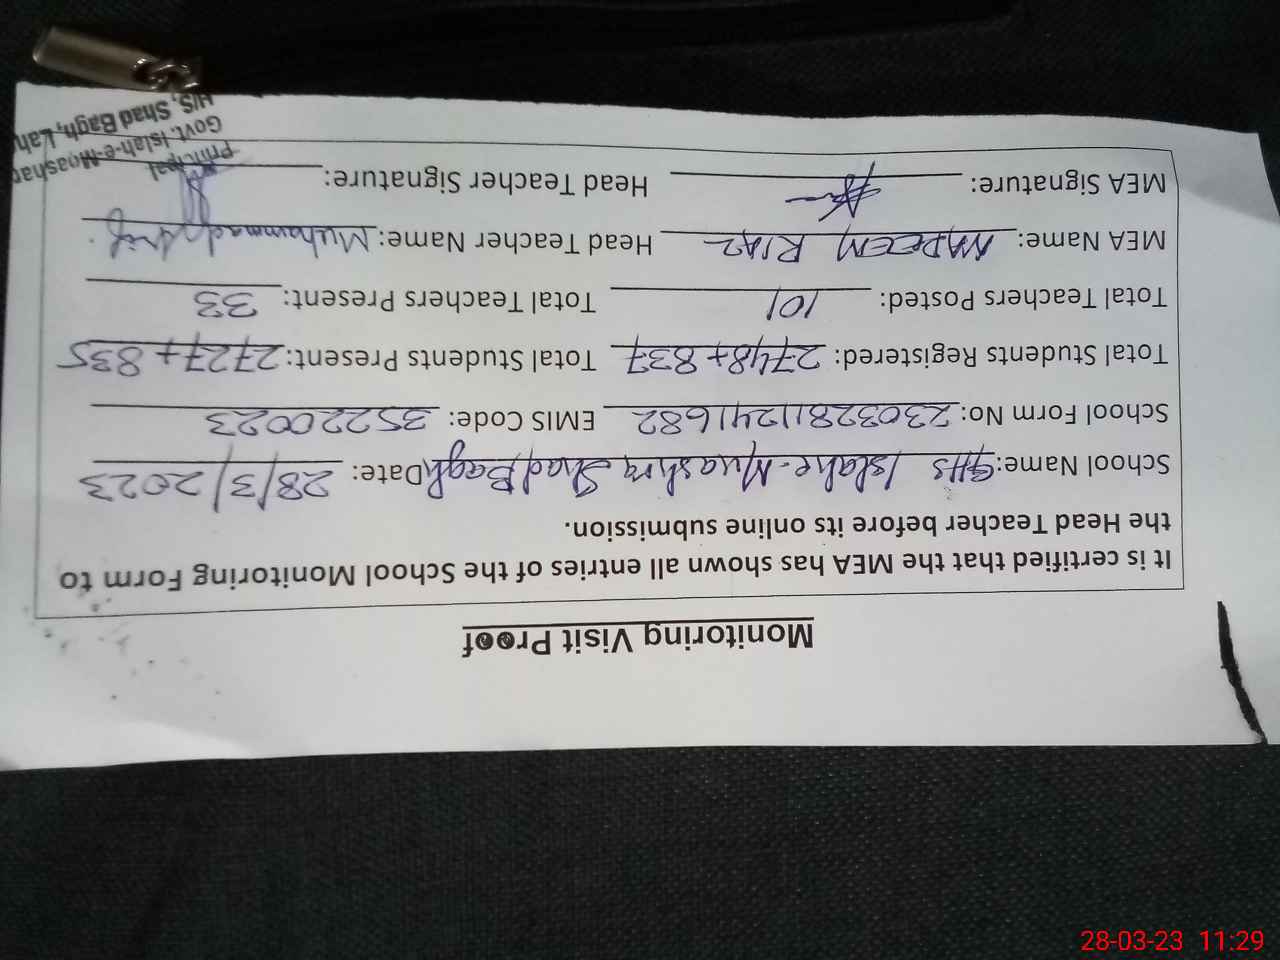 Monitoring Visit Proof
It is certified that the MEA has shown all entries of the School Monitoring Form to
the Head Teacher before its online submission.
School Name: GHS Islahe-Muashira Shad Bagh Date: 28/3/2023
School Form No: 2303281124 1682 EMIS Code: 35220023
Total Students Registered: 2748+837 Total Students Present: 2727+835
Total Teachers Posted: 101 Total Teachers Present: 33
MEA Name: NADEEM RIAZ Head Teacher Name: Muhammad
MEA Signature: Head Teacher Signature:
Principal
Govt. Islah-e-Moashar
H/S, Shad Bagh, Lah
28-03-23 11:29